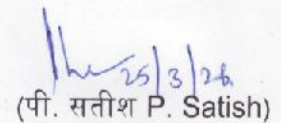 25/3/26
(पी. सतीश P. Satish)